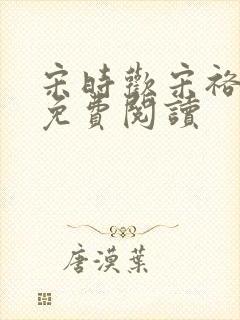 宋時歡宋裕
免費閱讀
唐漠葉